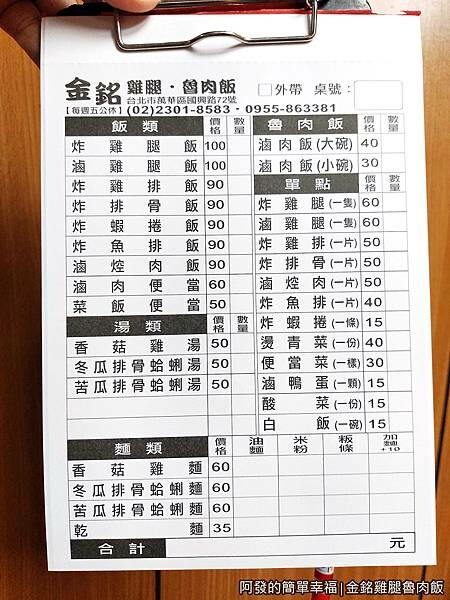 金銘 雞腿・魯肉飯 □外帶 桌號：
台北市萬華區國興路72號
【每週五公休】(02)2301-8583・0955-863381
飯類 價格 數量
炸雞腿飯 100
滷雞腿飯 100
炸雞排飯 90
炸排骨飯 90
炸蝦捲飯 90
炸魚排飯 90
滷焢肉飯 90
滷肉便當 60
菜飯便當 50
湯類 價格 數量
香菇雞湯 50
冬瓜排骨蛤蜊湯 50
苦瓜排骨蛤蜊湯 50
魯肉飯 價格 數量
滷肉飯(大碗) 40
滷肉飯(小碗) 30
單點 價格 數量
炸雞腿(一隻) 60
滷雞腿(一隻) 60
炸雞排(一片) 50
炸排骨(一片) 50
滷焢肉(一片) 50
炸魚排(一片) 40
炸蝦捲(一條) 15
燙青菜(一份) 40
便當菜(一樣) 30
滷鴨蛋(一顆) 15
酸菜(一份) 15
白飯(一碗) 15
麵類 價格 油麵 米粉 粄條 加麵+10
香菇雞麵 60
冬瓜排骨蛤蜊麵 60
苦瓜排骨蛤蜊麵 60
乾麵 35
合計 元
阿發的簡單幸福|金銘雞腿魯肉飯